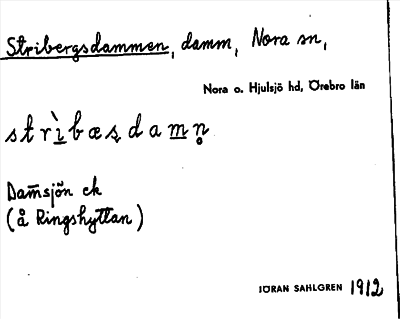 Stribergsdammen, damm, Nora sn,
Nora o. Hjulsjö hd, Örebro län
strìbæșdamn̥
Dam̅sjön ek
(å Ringshyttan)
JÖRAN SAHLGREN 1912